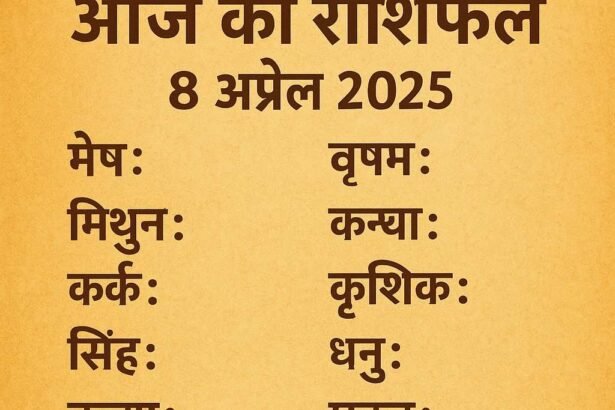 आज का राशिफल
8 अप्रेल 2025
मेष: वृषम:
मिथुन: कन्या:
कर्क: कृशिक:
सिंह: धनु: